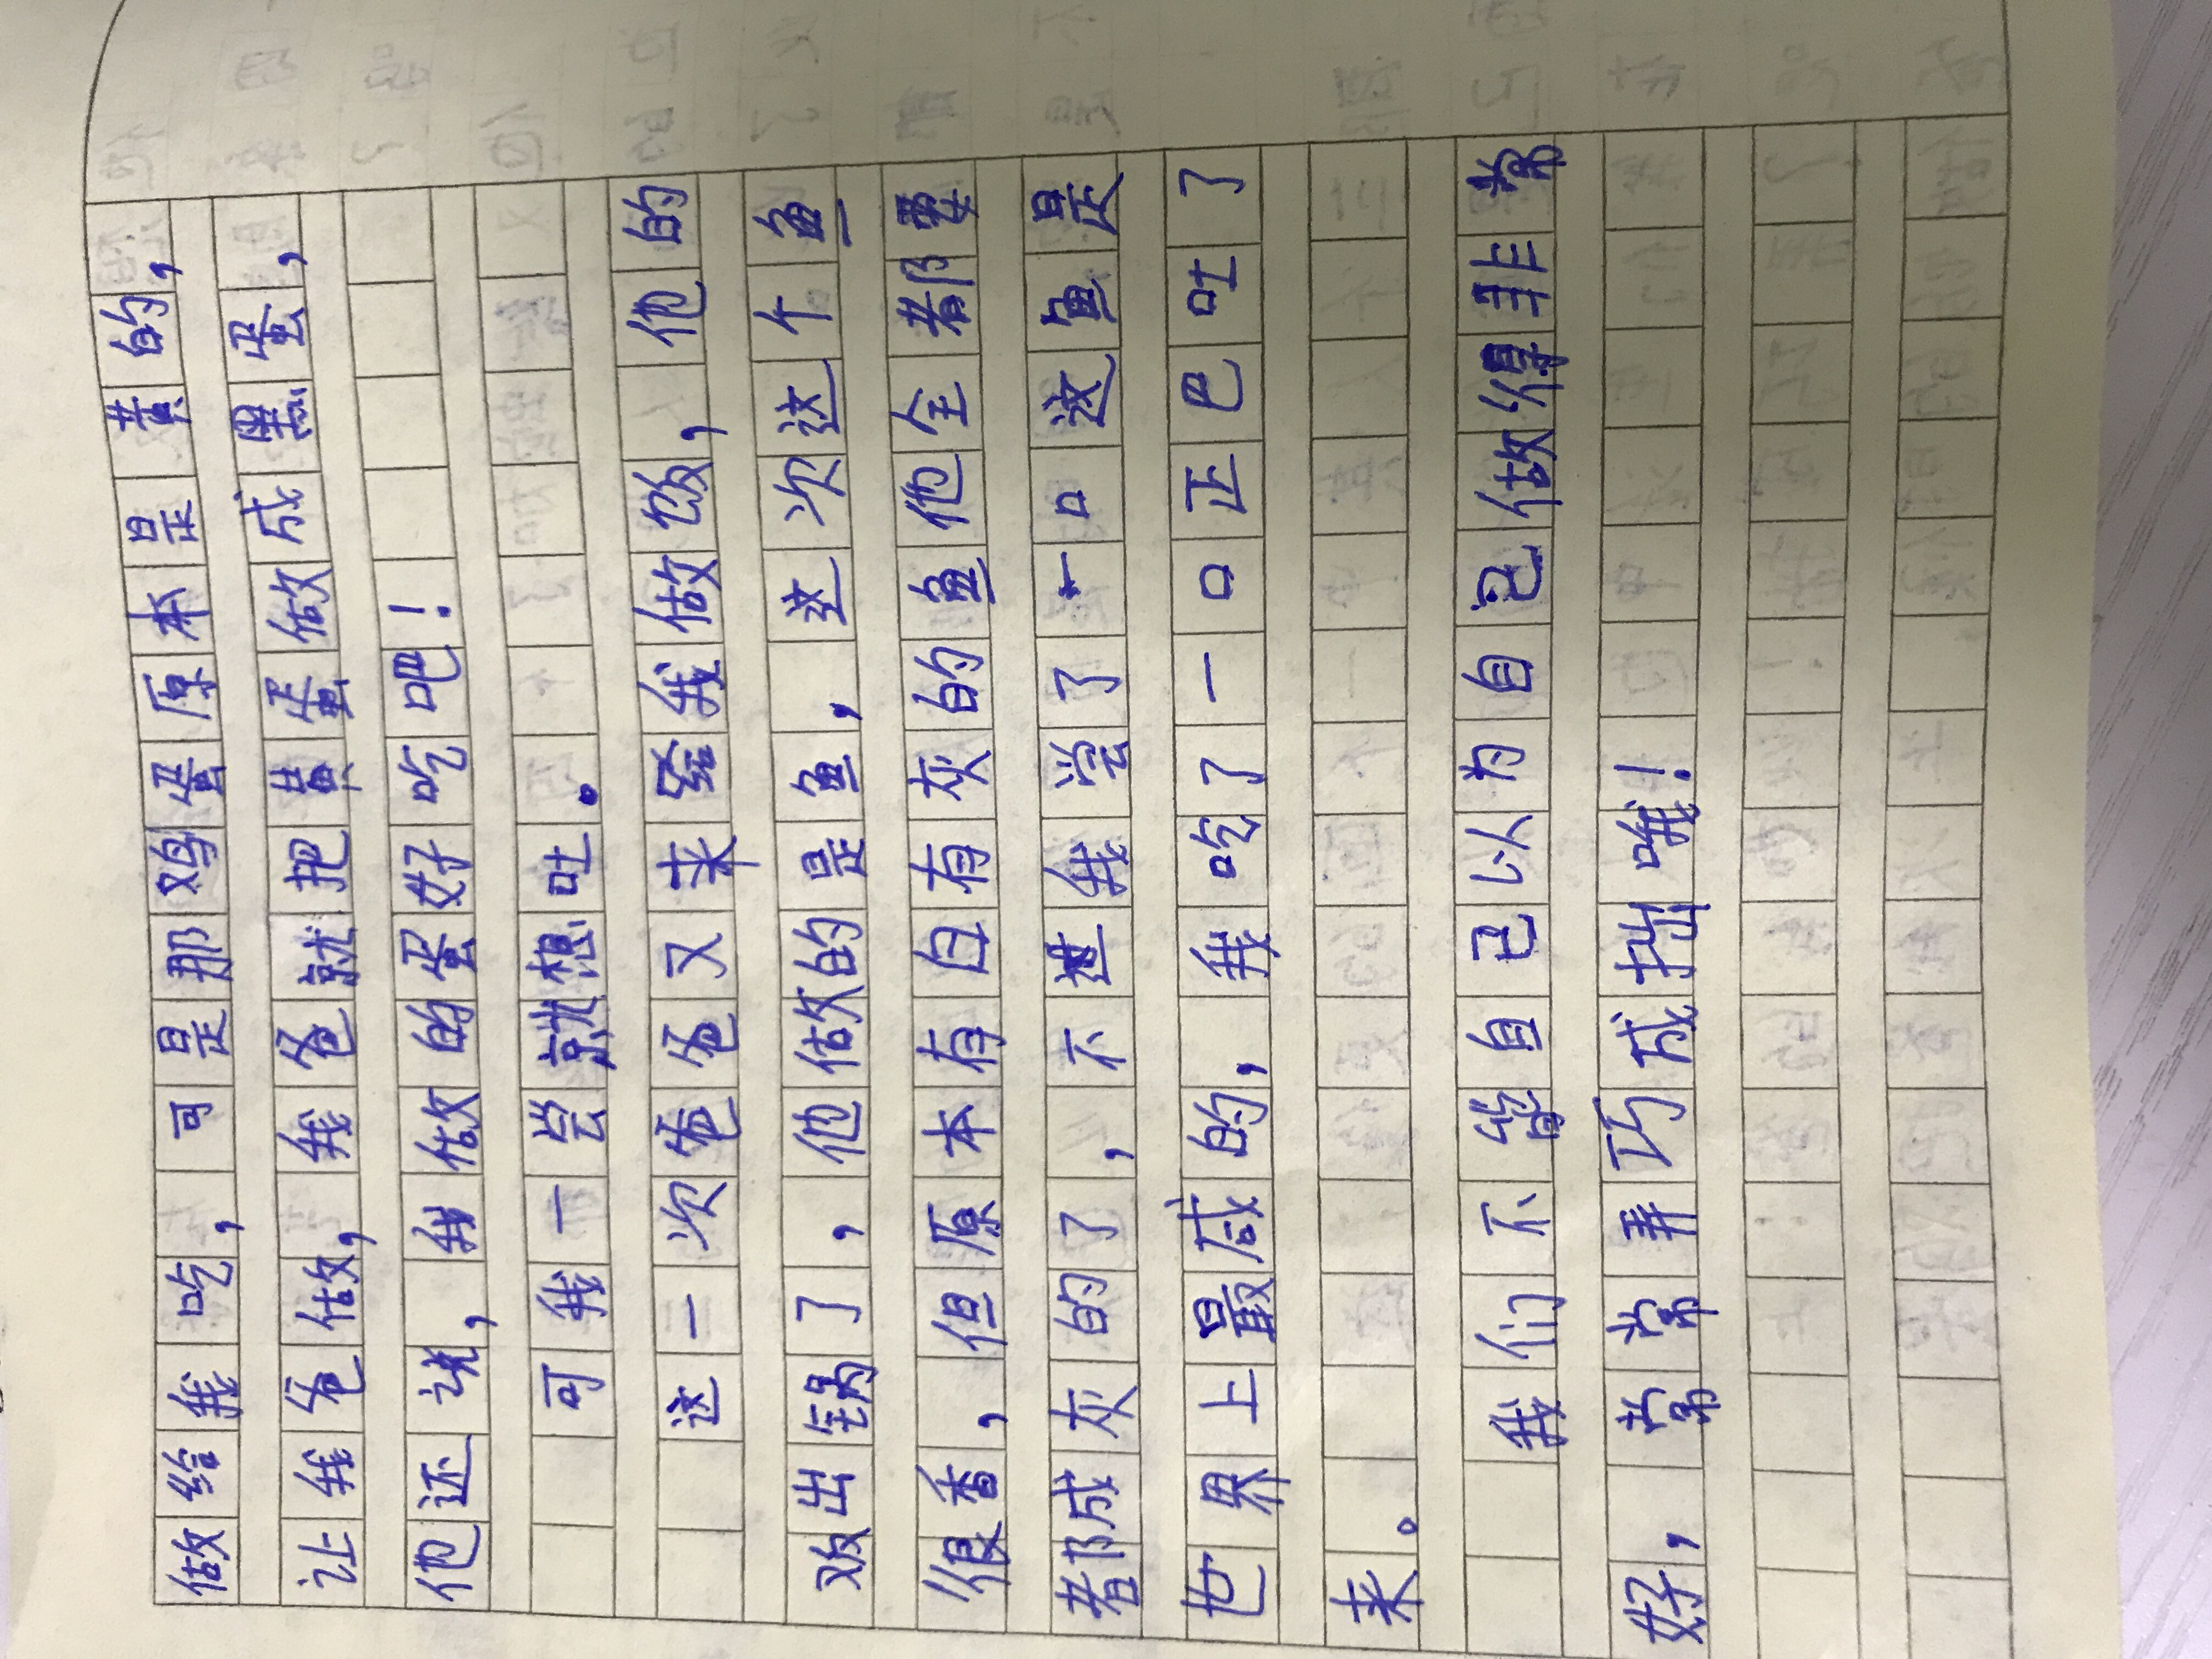 做给我吃，可是那鸡蛋原本是黄的，
让我爸做，我爸就把黄蛋做成黑蛋，
他还说，我做的蛋好吃吧！
可我一尝就想吐。
这一次爸爸又来给我做饭，他的
饭出锅了，他做的是鱼，这次这个鱼
很香，但原本有白有灰的鱼他全都要
都成灰的了，不过我尝了一口这鱼是
世界上最咸的，我吃了一口正巴吐了
来。
我们不管自己以为自己做得非常
好，常常弄巧成拙哦！